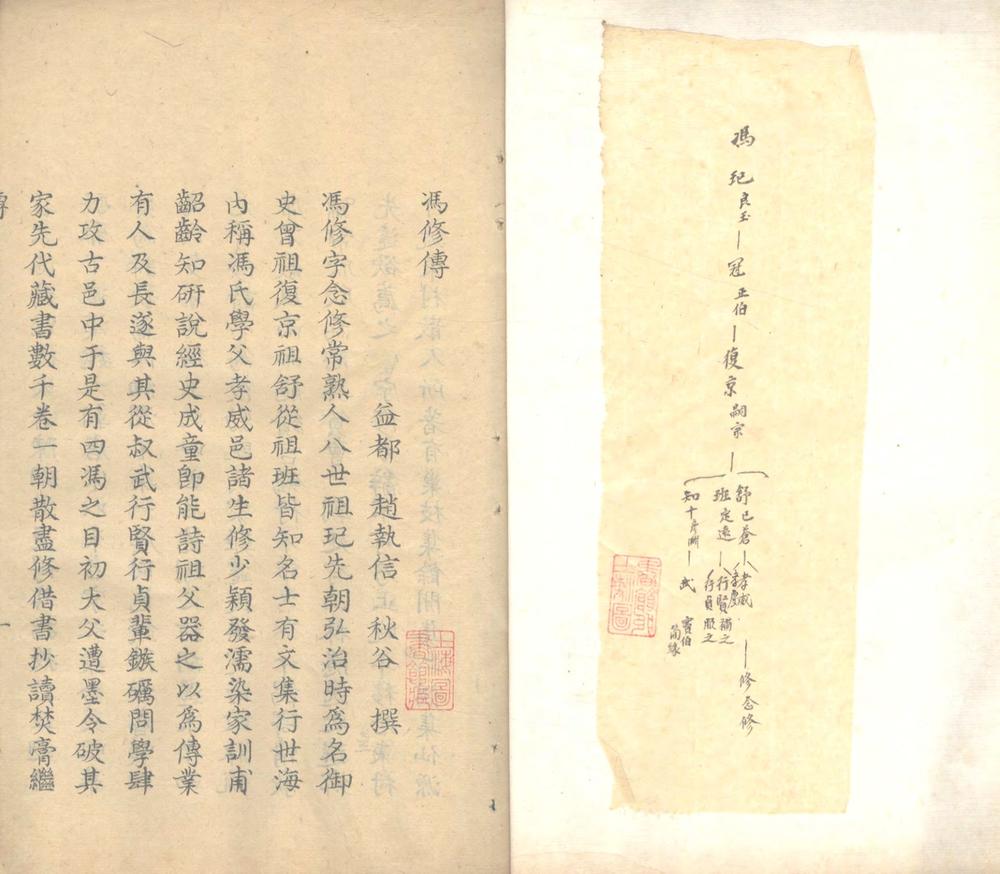 馮 玘良玉—冠正伯—復京嗣宗—
舒已蒼—孝威
—修念修
班定遠—行賢補之
行貞服之
知十
武
竇伯
簡緣
上海圖
書館藏
馮修傳
益都 趙執信 秋谷 撰
馮修字念修常熟人八世祖玘先朝弘治時爲名御
史曾祖復京祖舒從祖班皆知名士有文集行世海
內稱馮氏學父孝威邑諸生修少穎發濡染家訓甫
齠齡知研說經史成童即能詩祖父器之以爲傳業
有人及長遂與其從叔武行賢行貞輩鏃礪問學肆
力攻古邑中于是有四馮之目初大父遭墨令破其
家先代藏書數千卷一朝散盡修借書抄讀焚膏繼